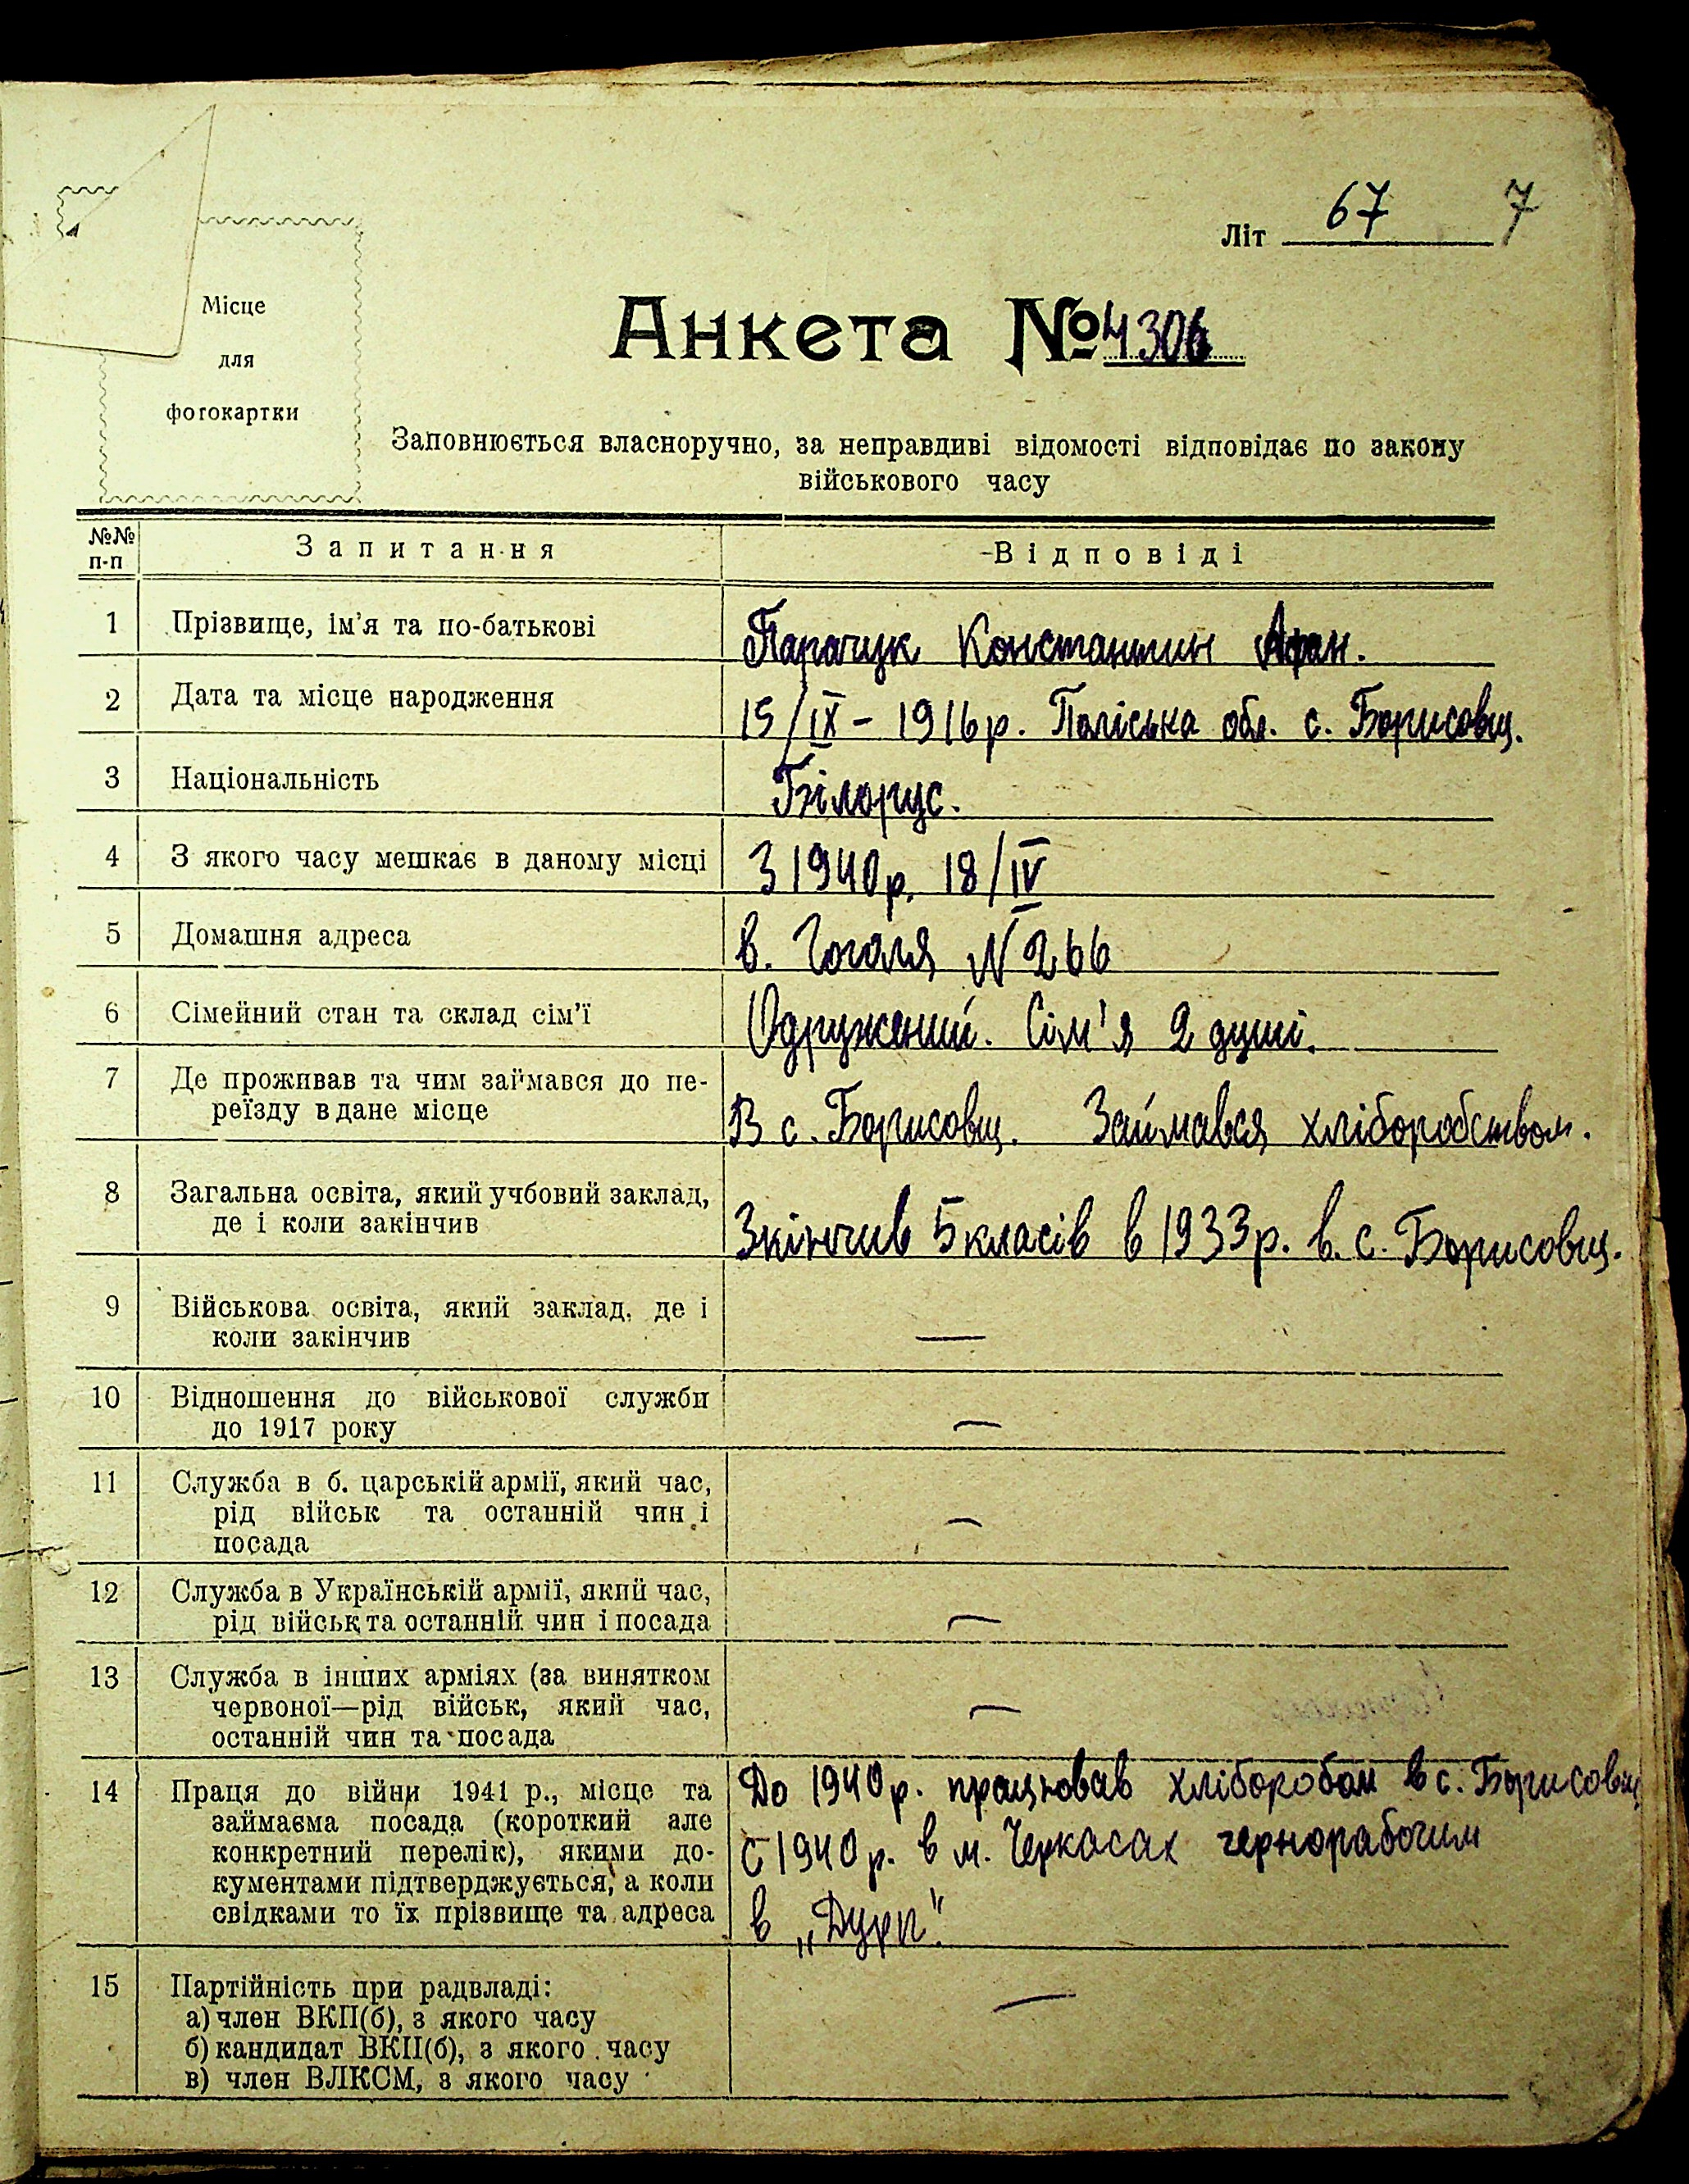 Літ 67 7
Місце
для
фотокартки
Анкета № 4306
Заповнюється власноручно, за неправдиві відомості відповідає по закону
військового часу
№№ п-п Запитання Відповіді
1 Прізвище, ім'я та по-батькові Парачук Константин
2 Дата та місце народження 15/IX – 1916 р. Поліська обл. с. Борисовщ.
3 Національність Білорус.
4 З якого часу мешкає в даному місці З 1940 р. 18/IV
5 Домашня адреса в. Гоголя N 266
6 Сімейний стан та склад сім'ї Одружений. Сім'я 2 душі.
7 Де проживав та чим займався до пе-
реїзду в дане місце В с. Борисовщ. Займався хліборобством.
8 Загальна освіта, який учбовий заклад,
де і коли закінчив Зкінчив 5 класів в 1933 р. в. с. Борисовщ.
9 Військова освіта, який заклад, де і
коли закінчив —
10 Відношення до військової служби
до 1917 року —
11 Служба в б. царській армії, який час,
рід військ та останній чин і
посада —
12 Служба в Українській армії, який час,
рід військ та останній чин і посада —
13 Служба в інших арміях (за винятком
червоної—рід військ, який час,
останній чин та посада —
14 Праця до війни 1941 р., місце та До 1940 р. працював хліборобом в с. Борисовщ
займаєма посада (короткий але
конкретний перелік), якими до- С 1940 р. в м. Черкасах чернорабочим
кументами підтверджується, а коли
свідками то їх прізвище та адреса в „Дурп".
15 Партійність при радвладі: —
а) член ВКП(б), з якого часу
б) кандидат ВКП(б), з якого часу
в) член ВЛКСМ, з якого часу